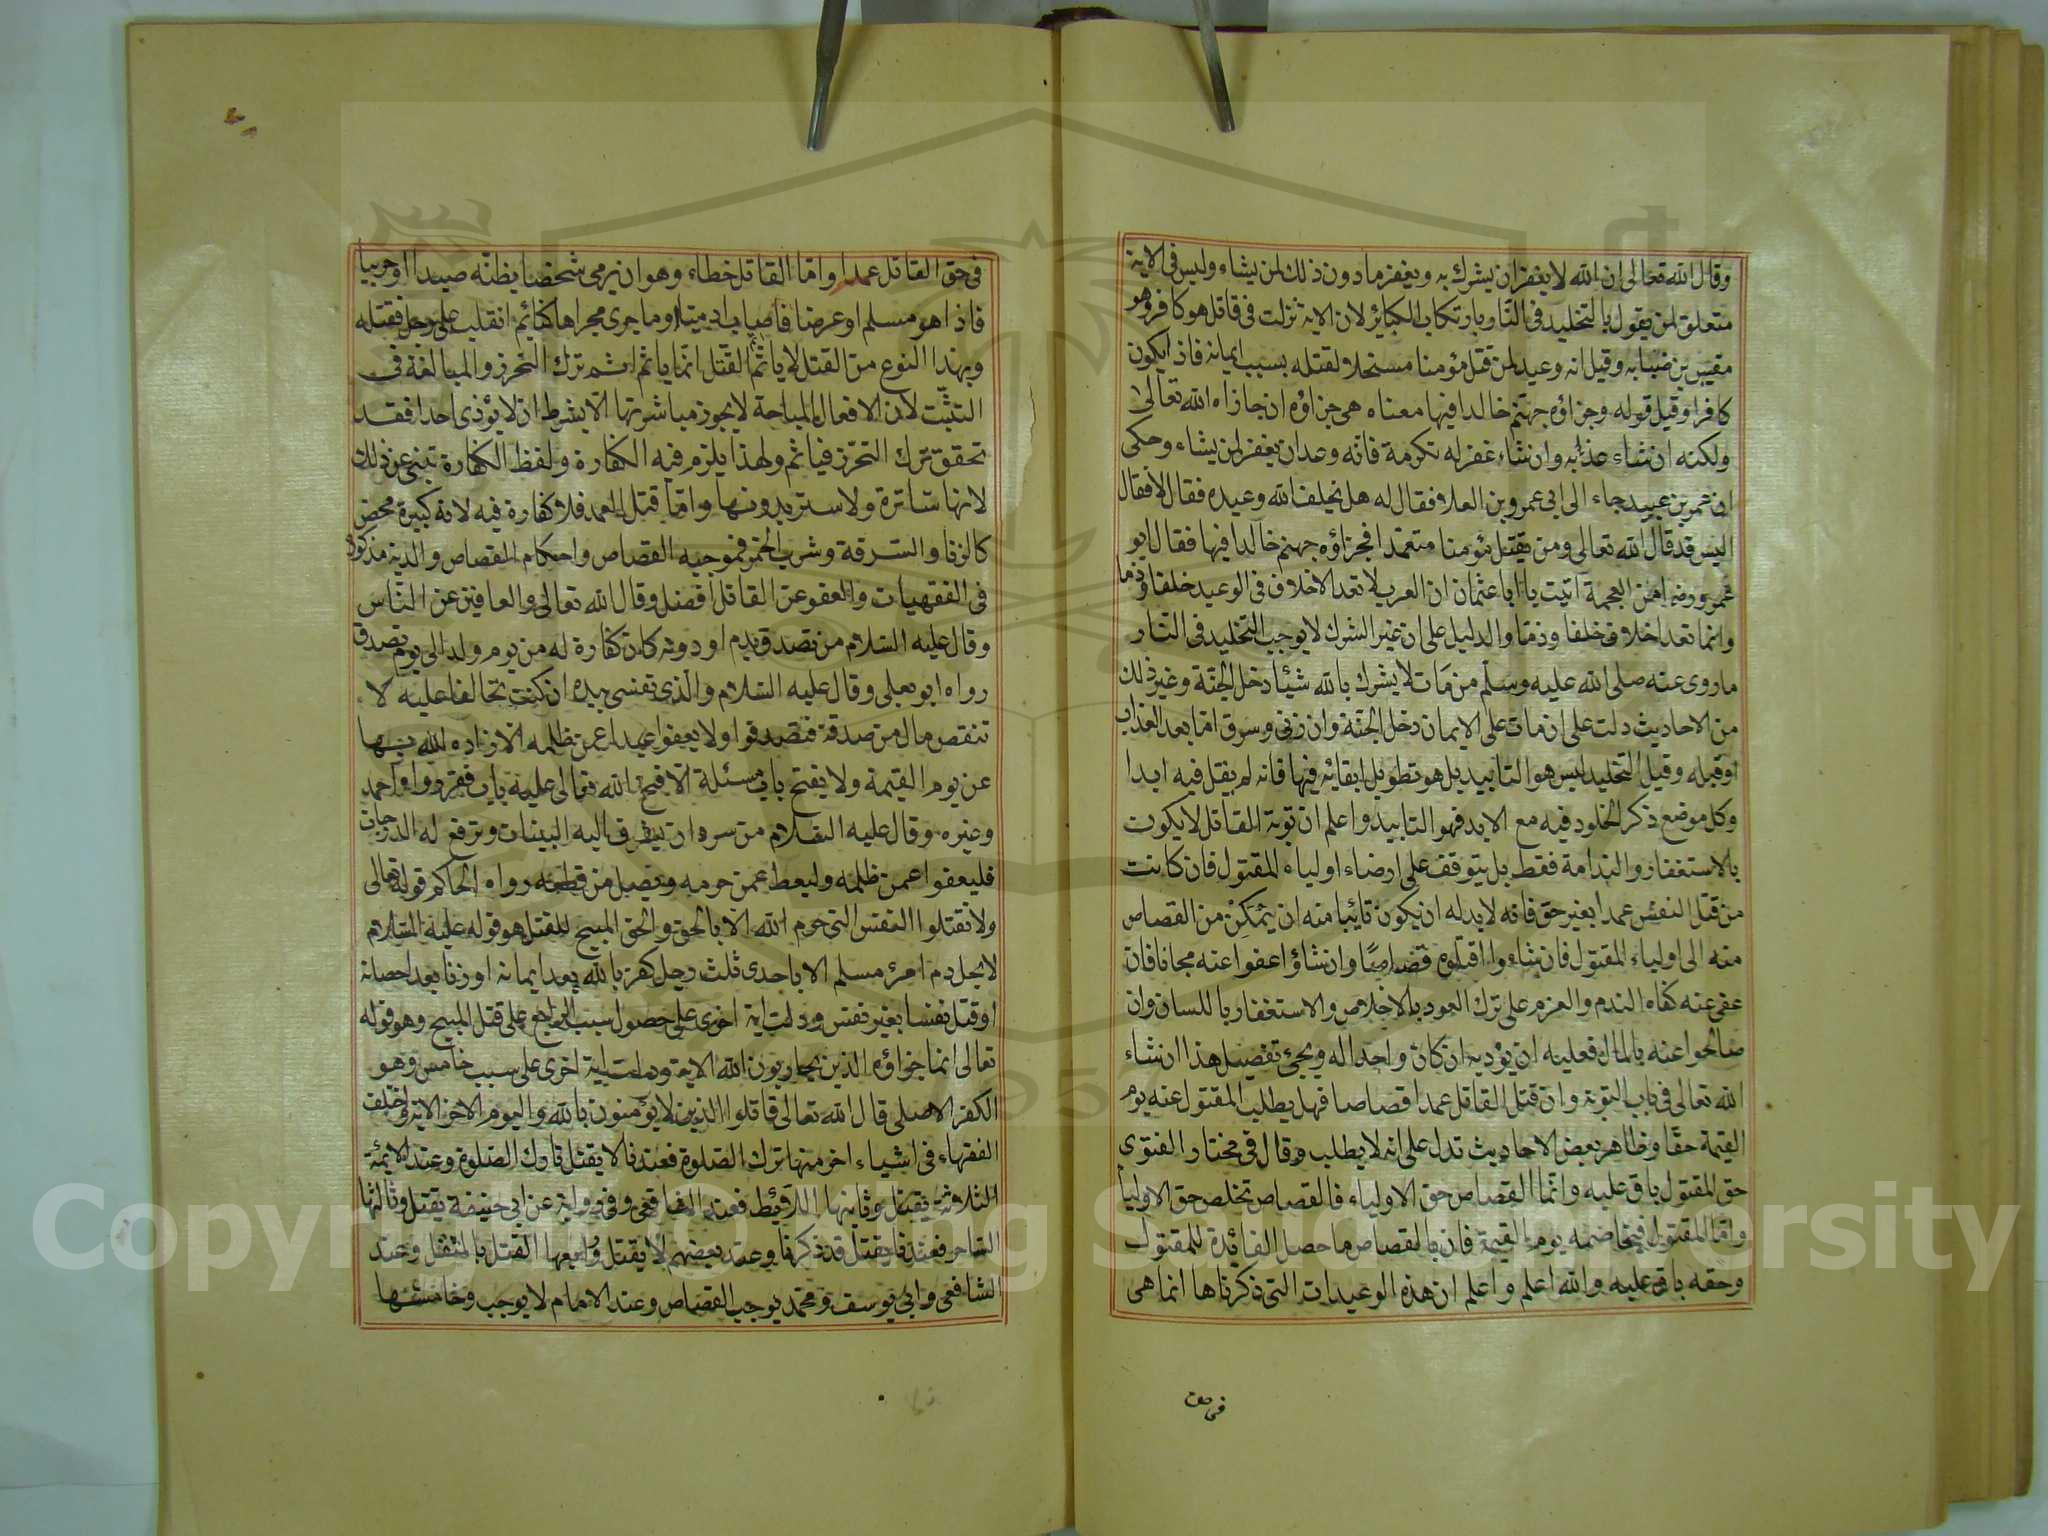 وقال الله تعالى ان الله لا يغفر ان يشرك به ويغفر ما دون ذلك لمن يشاء وليس فى الاية
متعلق لمن يقول بالتخليد فى النار بارتكاب الكبائر لان الاية نزلت فى قاتل هو كافر وهو
مقيس بن ضبابه وقيل انه وعيد لمن قتل مؤمنا مستحلا لقتله بسبب ايمانه فاذا يكون
كافرا وقيل قوله وجزاؤه جهنم خالدا فيها معناه هى جزاؤه ان جازاه الله تعالى
ولكنه ان شاء عذبه وان شاء غفر له بكرمه فانه وعد ان يغفر لمن يشاء وحكى
ان عمر بن عبيد جاء الى ابى عمرو بن العلا فقال له هل يخلف الله وعيده فقال لا فقال
اليس قد قال الله تعالى ومن يقتل مؤمنا متعمدا فجزاؤه جهنم خالدا فيها فقال ابو
عمرو رضه امن العجمة اتيت يا ابا عثمان ان العرب لا تعد الاخلاف فى الوعيد خلفا وذما
وانما تعد اخلاف خلفا وذما والدليل على ان غير الشرك لا يوجب التخليد فى النار
ما روى عنه صلى الله عليه وسلم من مات لا يشرك بالله شيئا دخل الجنة وغير ذلك
من الاحاديث دلت على ان مات على الايمان دخل الجنة وان زنى وسرق اما بعد العذاب
او قبله وقيل التخليد ليس هو التابيد بل هو تطويل ابقائه فيها فانه لم يقل فيه ابدا
وكل موضع ذكر الخلود فيه مع الابد فهو التابيد واعلم ان توبة القاتل لا يكون
بالاستغفار والندامة فقط بل يتوقف على ارضاء اولياء المقتول فان كانت
من قتل النفس عمدا بغير حق فانه لا بد له ان يكون تائبا منه ان يتمكن من القصاص
منه الى اولياء المقتول فان شاءوا اقتلوه قصاصا وان شاؤا اعفوا عنه مجانا فان
عفى عنه كفاه الندم والعزم على ترك العود بالاخلاص والاستغفار باللسان وان
صالحوا عنه بالمال فعليه ان يؤديه ان كان واجدا له ويجئ تفصيل هذا ان شاء
الله تعالى فى باب التوبة وان قتل القاتل عمدا قصاصا فهل يطلب المقتول عنه يوم
القيمة حقا وظاهر بعض الاحاديث تدل على انه لا يطلب وقال فى مختار الفتوى
حق المقتول باق عليه وانما القصاص حق الاولياء فالقصاص تخلص حق الاوليا
واما المقتول فيخاصمه يوم القيمة فان بالقصاص ما حصل الفائدة للمقتول
وحقه باق عليه والله اعلم واعلم ان هذه الوعيدات التى ذكرناها انما هى
فى حق
فى حق القاتل عمدا واما القاتل خطاء وهو ان يرمى شخصا يظنه صيدا او حربيا
فاذا هو مسلم او عرضا فاصاب ادميا او ما جرى مجراها كنائم انقلب على رجل فقتله
وبهذا النوع من القتل لا ياثم القتل انما ياثم اثم ترك التحرز والمبالغة فى
التثبت لان الافعال المباحة لا يجوز مباشرتها الا بشرط ان لا يؤذى احدا فقد
تحقق ترك التحرز فياثم ولهذا يلزم فيه الكفارة ولفظ الكفارة تبنى عن ذلك
لانها ساترة ولا ستر بدونها واما قتل العمد فلا كفارة فيه لانه كبيرة محض
كالزنا والسرقة وشرب الخمر فموجبه القصاص واحكام القصاص والدية مذكور
فى الفقهيات والعفو عن القاتل افضل وقال الله تعالى والعافين عن الناس
وقال عليه السلام من تصدق بدم او دونه كان كفارة له من يوم ولد الى يوم تصدق
رواه ابو يعلى وقال عليه السلام والذى نفسى بيده ان كنت لحالفا عليه لا
تنقص مال من صدقة فتصدقوا ولا يعفوا عبدا عمن ظلمه الا زاده الله بها
عن يوم القيمة ولا يفتح باب مسئلة الا فتح الله تعالى عليه باب فقر رواه احمد
وغيره وقال عليه السلام من سره ان يشرف اليه البينات وترفع له الدرجات
فليعفوا عمن ظلمه وليعط عمن حرمه ويصل من قطعه رواه الحاكم قوله تعالى
ولا تقتلوا النفس التى حرم الله الا بالحق والحق المبيح للقتل هو قوله عليه السلام
لا يحل دم امرئ مسلم الا باحدى ثلث رجل كفر بالله بعد ايمانه او زنا بعد احصانه
او قتل نفسا بغير نفس ودلت اية اخرى على حصول سبب الرابع على قتل المبيح وهو قوله
تعالى انما جزاؤه الذين يحاربون الله الاية ودلت اية اخرى على سبب خامس وهو
الكفر الاصلى قال الله تعالى قاتلوا الذين لا يؤمنون بالله واليوم الاخر الاية واختلف
الفقهاء فى اشياء اخر منها ترك الصلوة فعندنا لا يقتل تارك الصلوة وعند الائمة
الثلاثة يقتل وثانيها اللائط فعند الشافعى وفى رواية عن ابى حنيفة يقتل وثالثها
الساحر فعندنا يقتل قد ذكرنا وعند بعضهم لا يقتل ورابعها القتل بالمثقل وعند
الشافعى وابى يوسف ومحمد يوجب القصاص وعند الامام لا يوجب وخامسها
Copyright © King Saud University